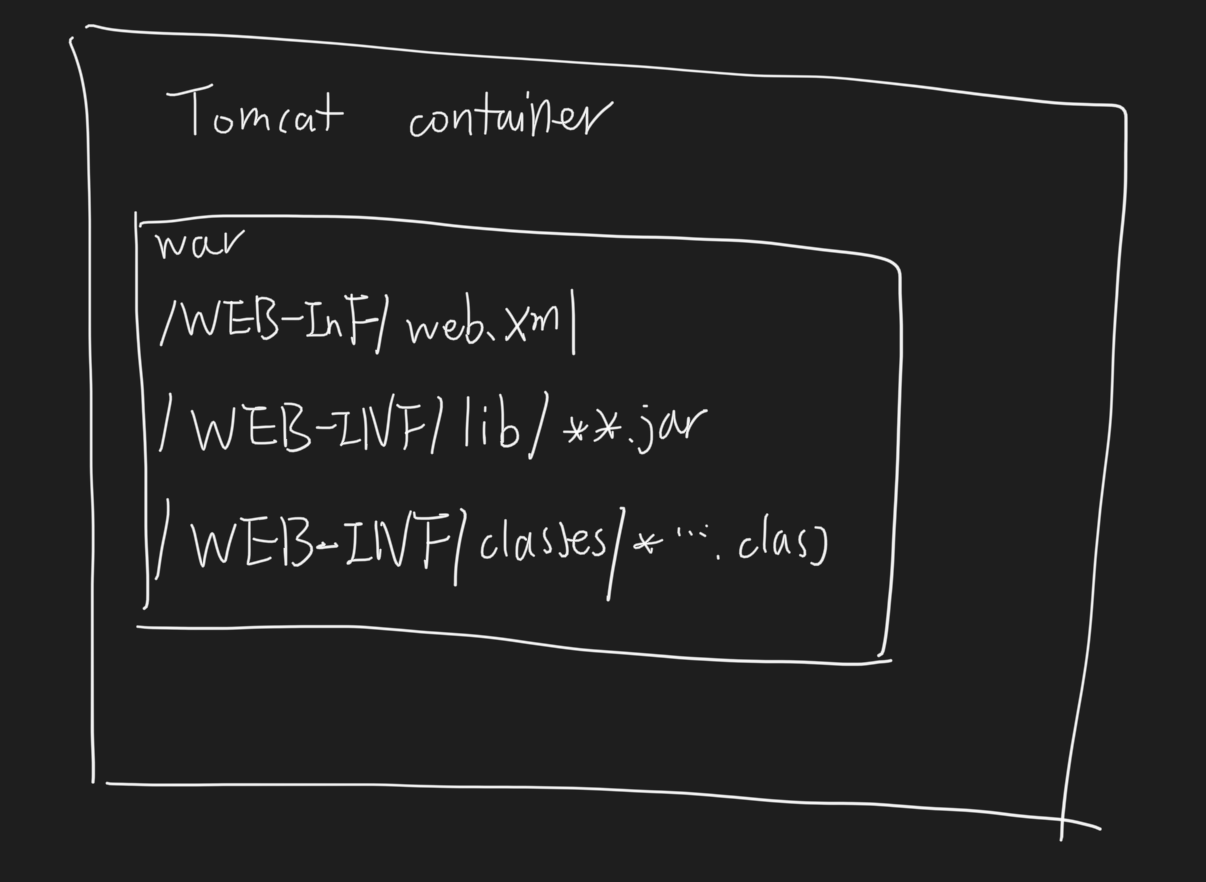 Tomcat container
war
/WEB-InF/ web.xml
/ WEB-INF/ lib/ **.jar
/ WEB-INF/ classes/ * ... . class